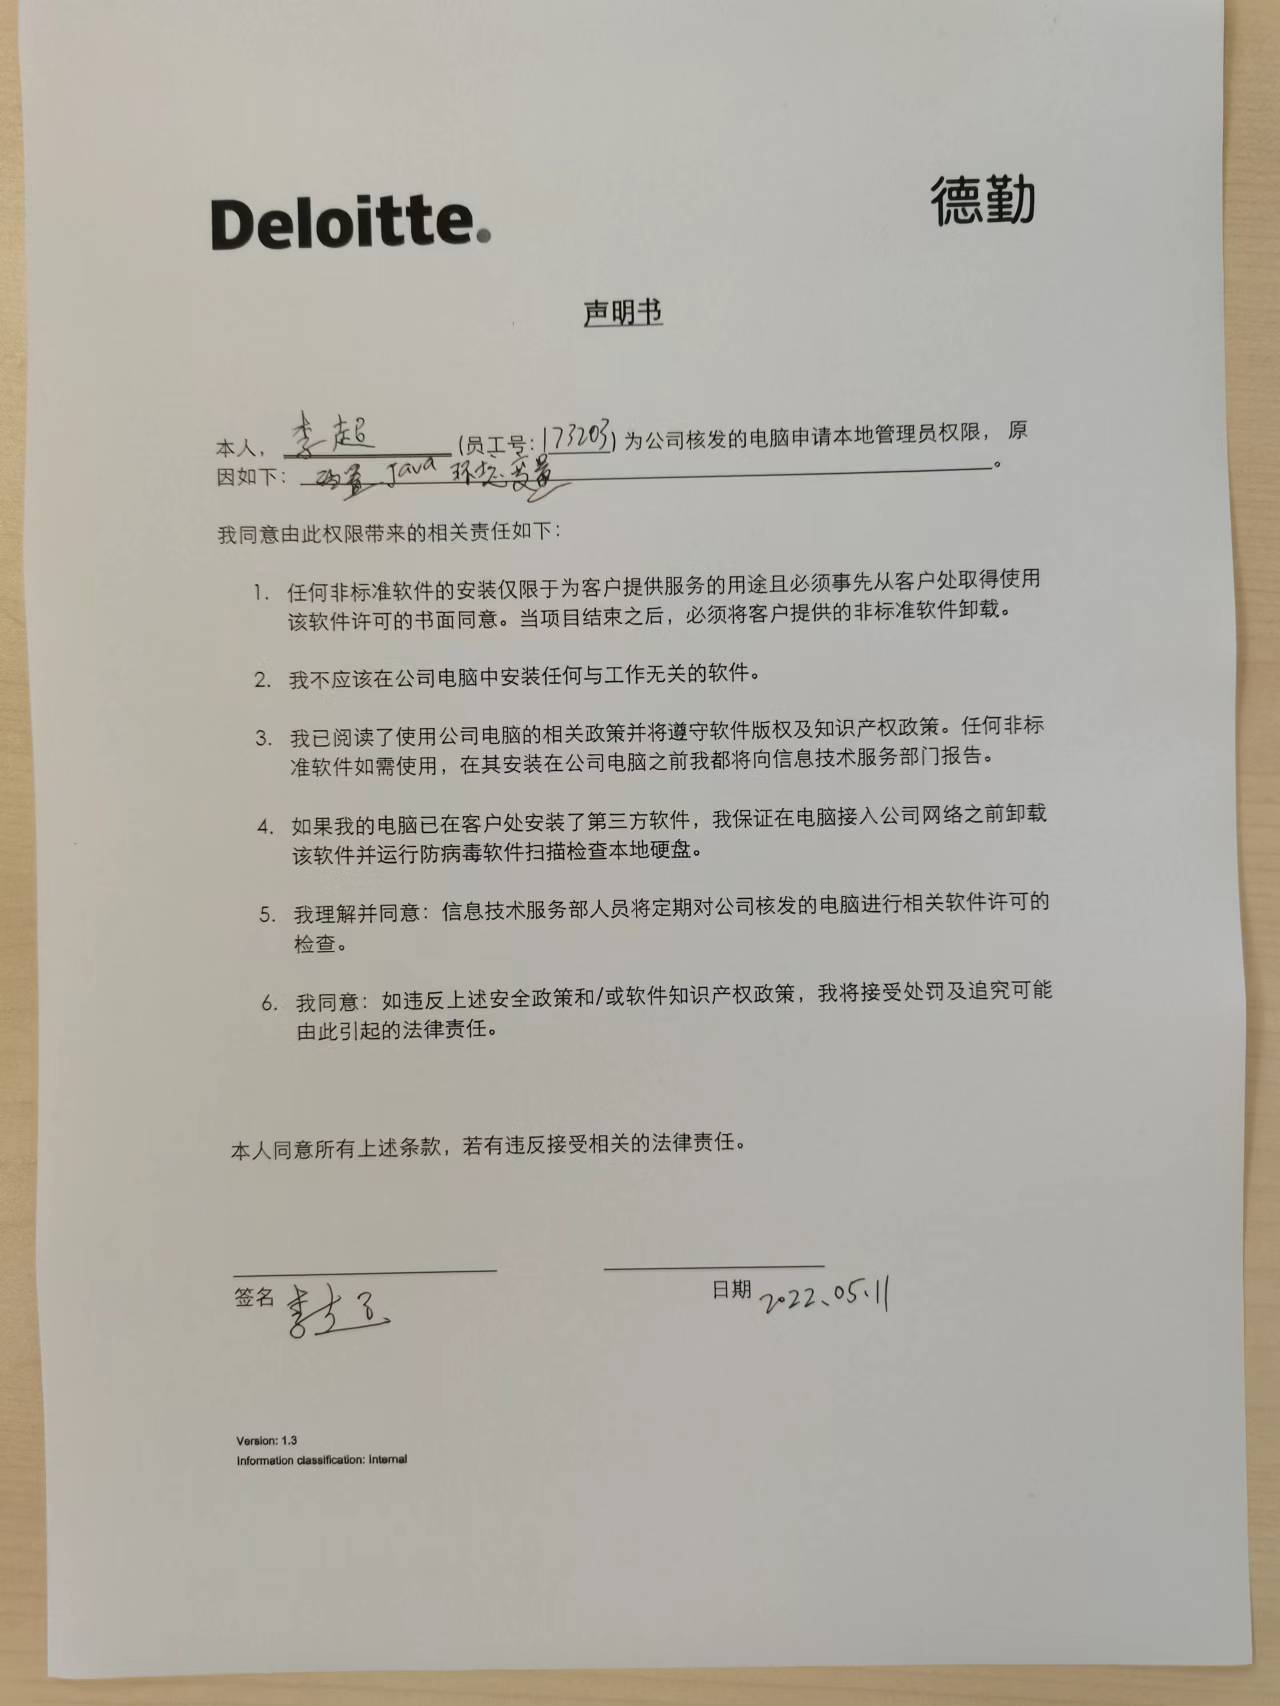 Deloitte.
德勤
声明书
本人，李超 (员工号: 173203) 为公司核发的电脑申请本地管理员权限，原
因如下：配置 Java 环境变量。
我同意由此权限带来的相关责任如下：
1. 任何非标准软件的安装仅限于为客户提供服务的用途且必须事先从客户处取得使用
该软件许可的书面同意。当项目结束之后，必须将客户提供的非标准软件卸载。
2. 我不应该在公司电脑中安装任何与工作无关的软件。
3. 我已阅读了使用公司电脑的相关政策并将遵守软件版权及知识产权政策。任何非标
准软件如需使用，在其安装在公司电脑之前我都将向信息技术服务部门报告。
4. 如果我的电脑已在客户处安装了第三方软件，我保证在电脑接入公司网络之前卸载
该软件并运行防病毒软件扫描检查本地硬盘。
5. 我理解并同意：信息技术服务部人员将定期对公司核发的电脑进行相关软件许可的
检查。
6. 我同意：如违反上述安全政策和/或软件知识产权政策，我将接受处罚及追究可能
由此引起的法律责任。
本人同意所有上述条款，若有违反接受相关的法律责任。
签名 李超
日期 2022.05.11
Version: 1.3
Information classification: Internal